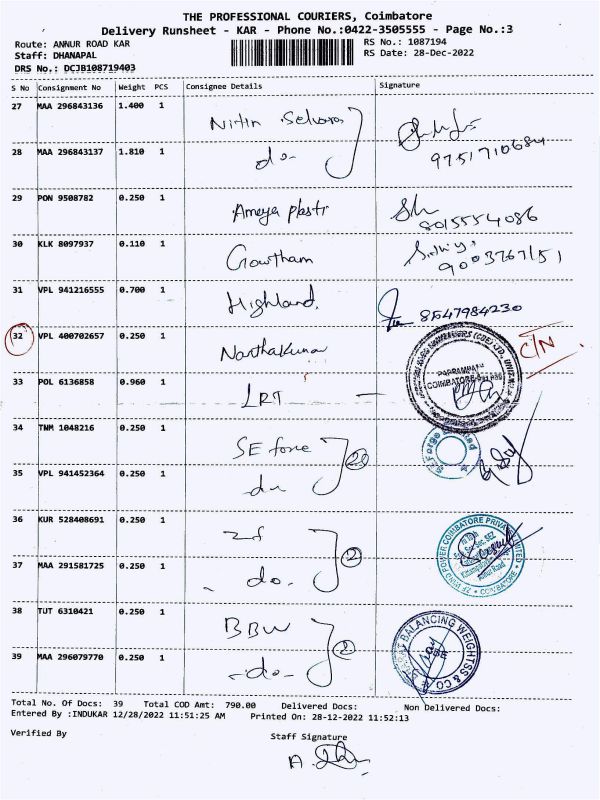 THE PROFESSIONAL COURIERS, Coimbatore
Delivery Runsheet - KAR - Phone No.:0422-3505555 - Page No.:3
Route: ANNUR ROAD KAR
RS No.: 1087194
Staff: DHANAPAL
RS Date: 28-Dec-2022
DRS No.: DCJB108719403
S No Consignment No Weight PCS Consignee Details Signature
27 MAA 296843136 1.400 1 Nitin Selvaraj
28 MAA 296843137 1.810 1 do- 9751710684
29 PON 9508782 0.250 1 Ameya plastr 8015554086
30 KLK 8097937 0.110 1 Gowtham 9003767151
31 VPL 941216555 0.700 1 Highland. 8547984230
32 VPL 400702657 0.250 1 C/N
33 POL 6136858 0.960 1 LRT
COIMBATORE
34 TNM 1048216 0.250 1 SE forge
35 VPL 941452364 0.250 1 do
36 KUR 528408691 0.250 1 ZF
37 MAA 291581725 0.250 1 - do. 2
ZF WIND POWER COIMBATORE PRIVATE LIMITED
38 TUT 6310421 0.250 1 BBW
39 MAA 296079770 0.250 1 -do- 2
BALANCING WEIGHTSS & CO
Total No. Of Docs: 39 Total COD Amt: 790.00 Delivered Docs: Non Delivered Docs:
Entered By :INDUKAR 12/28/2022 11:51:25 AM Printed On: 28-12-2022 11:52:13
Verified By
Staff Signature